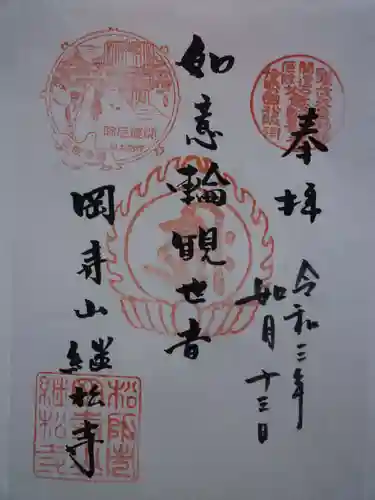 奉拝
令和三年
如月十三日
如意輪観世音
岡寺山継松寺